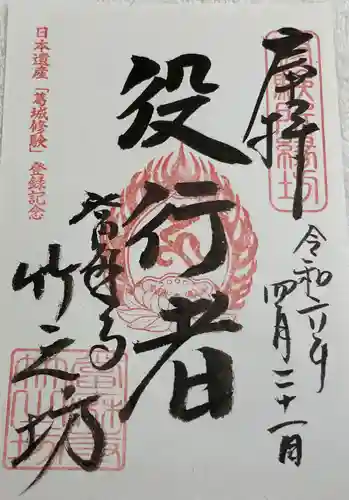 奉拝
令和六年
四月二十一日
役行者
日本遺産「葛城修験」登録記念
當麻寺
竹之坊